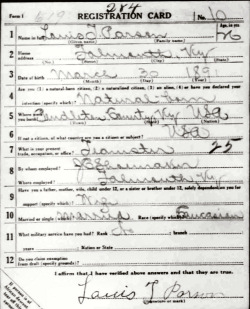 Form 1
284
REGISTRATION CARD
No. 10
1 Name in full Louis T Parson 26
(Given name) (Family name)
Age, in yrs.
2 Home address Falmouth, Ky
3 Date of birth March 30 1891
(Month) (Day) (Year)
4 Are you (1) a natural-born citizen, (2) a naturalized citizen, (3) an alien, (4) or have you declared your
intention (specify which)? Natural Born
5 Where were you born? Pendleton County Ky USA
6 If not a citizen, of what country are you a citizen or subject? USA
7 What is your present trade, occupation, or office? Teamster 25
8 By whom employed? Shoemaker
Where employed? Falmouth Ky
9 Have you a father, mother, wife, child under 12, or a sister or brother under 12, solely dependent on you for
support (specify which)? Wife
10 Married or single (which)? Married Race (specify which)? Caucasian
11 What military service have you had? Rank No ; branch
years ; Nation or State
12 Do you claim exemption
from draft (specify grounds)?
I affirm that I have verified above answers and that they are true.
Louis T Parson
(Signature or mark)